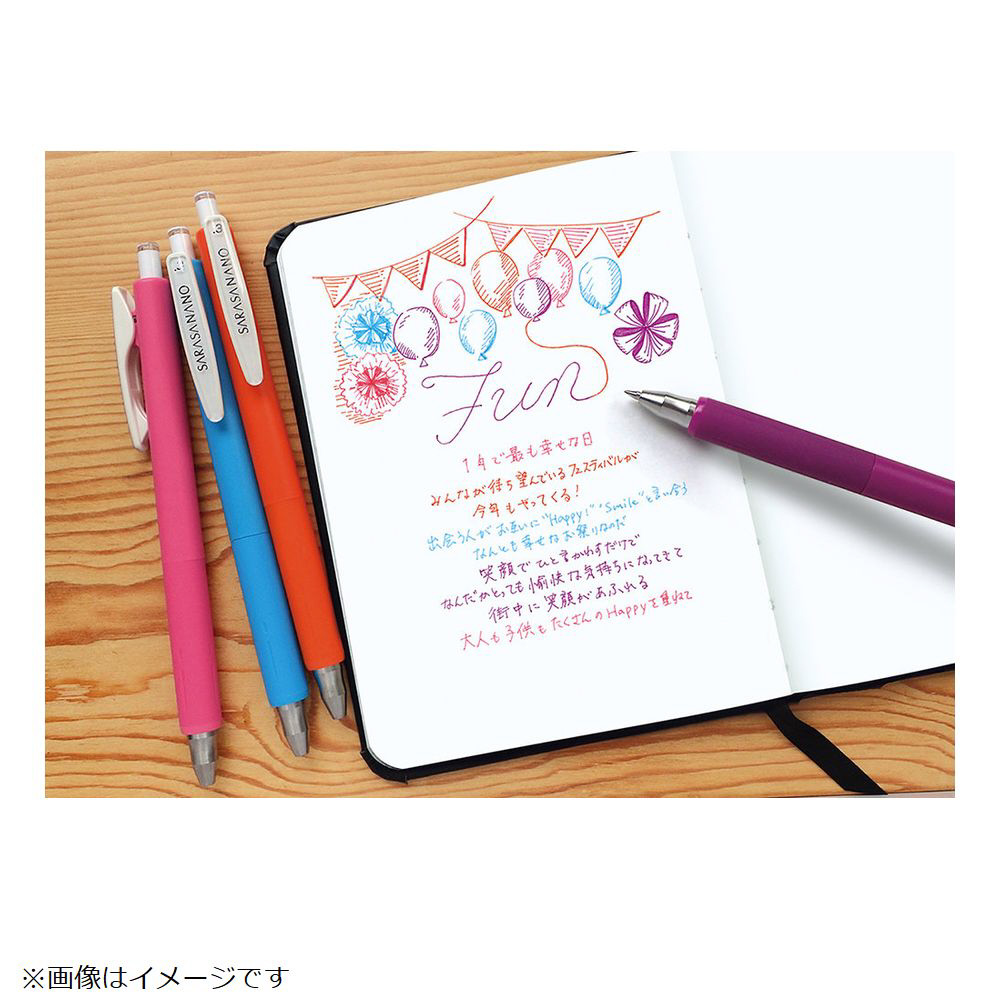 .3
SARASA NANO
.3
SARASA NANO
Fun
1年で最も幸せな日
みんなが待ち望んでいるフェスティバルが
今年もやってくる!
出会う人がお互いに"Happy!" "Smile"と言い合う
なんとも幸せなお祭りなのだ
笑顔でひと言かわすだけで
なんだかとっても愉快な気持ちになってきて
街中に笑顔があふれる
大人も子供もたくさんのHappyを重ねて
※画像はイメージです